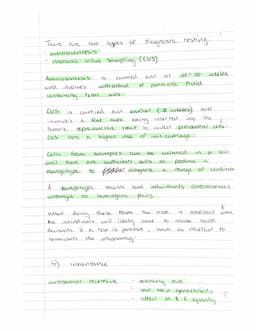 There are two types of diagnostic testing.
- amniocentesis
- chorionic villus sampling (CVS)
Amniocentesis is carried out at 15-20 weeks
and involves withdrawal of amniotic fluid
containing fetal cells.
CVS is carried out earlier (12 weeks) and
involves a fine tube being inserted into the
female reproductive tract to collect placental cells.
CVS has a higher risk of miscarriage.
Cells from samples can be cultured in a cell
until there are sufficient cells to produce a
karyotype to diagnose a range of conditions
A karyotype shows and individuals chromosomes
arranged as homologous pairs.
When doing these tests the risk is assessed
the individuals will likely want to make
decisions if a test is positive, such as whether to
terminate the pregnancy.
b) inheritance
autosomal recessive
- can skip generations
- affect M & F equally